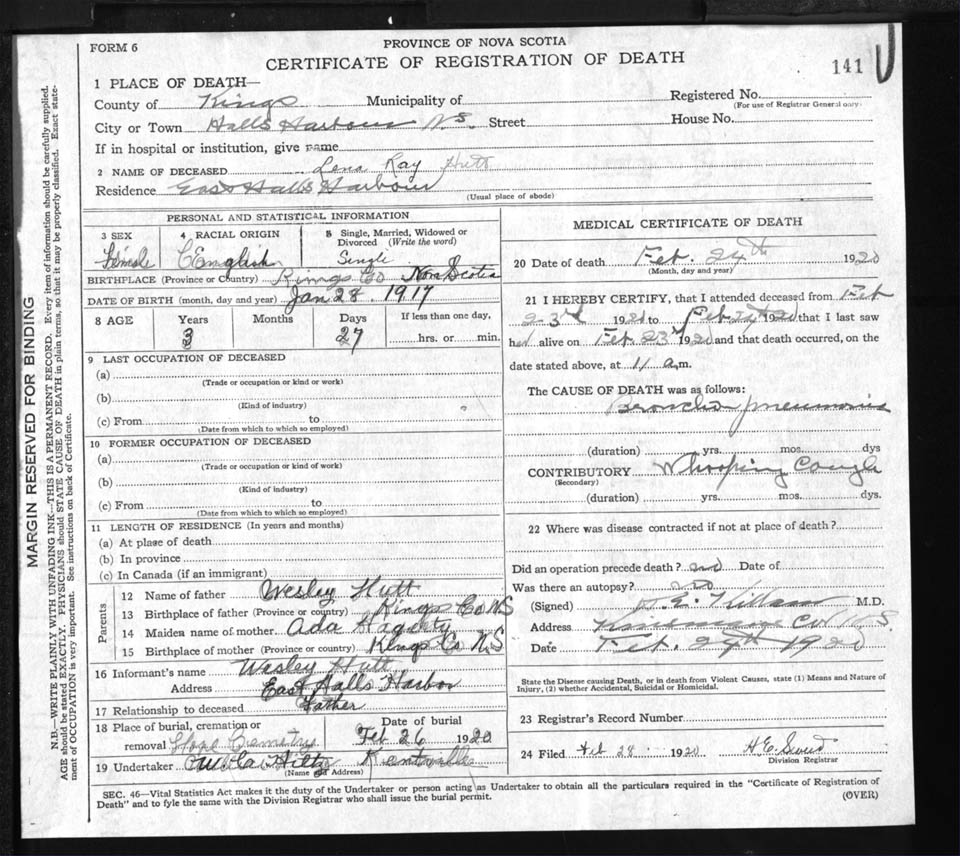 FORM 6
PROVINCE OF NOVA SCOTIA
CERTIFICATE OF REGISTRATION OF DEATH
141
1 PLACE OF DEATH—
County of Kings Municipality of Registered No.
(For use of Registrar General only)
City or Town Halls Harbour N.S. Street House No.
If in hospital or institution, give name
2 NAME OF DECEASED Lena Ray Hutt
Residence East Halls Harbour
(Usual place of abode)
PERSONAL AND STATISTICAL INFORMATION
3 SEX 4 RACIAL ORIGIN 5 Single, Married, Widowed or Divorced (Write the word)
Female English Single
BIRTHPLACE (Province or Country) Kings Co Nova Scotia
DATE OF BIRTH (month, day and year) Jan 28 1917
8 AGE Years Months Days If less than one day,
3 27 hrs. or min.
9 LAST OCCUPATION OF DECEASED
(a)
(Trade or occupation or kind or work)
(b)
(Kind of industry)
(c) From to
(Date from which to which so employed)
10 FORMER OCCUPATION OF DECEASED
(a)
(Trade or occupation or kind of work)
(b)
(Kind of industry)
(c) From to
(Date from which to which so employed)
11 LENGTH OF RESIDENCE (In years and months)
(a) At place of death
(b) In province
(c) In Canada (if an immigrant)
Parents
12 Name of father Wesley Hutt
13 Birthplace of father (Province or country) Kings Co NS
14 Maiden name of mother Ada Hagerty
15 Birthplace of mother (Province or country) Kings Co N.S
16 Informant's name Wesley Hutt
Address East Halls Harbor
17 Relationship to deceased Father
18 Place of burial, cremation or Date of burial
removal Cemetry Feb 26 1920
19 Undertaker Kentville
(Name and Address)
MEDICAL CERTIFICATE OF DEATH
20 Date of death Feb. 24th 1920
(Month, day and year)
21 I HEREBY CERTIFY, that I attended deceased from Feb
23rd 1920 to Feb 24th 1920 that I last saw
her alive on Feb. 23rd 1920 and that death occurred, on the
date stated above, at 11 a.m.
The CAUSE OF DEATH was as follows:
Broncho pneumonia
(duration) yrs. mos. dys
CONTRIBUTORY Whooping Cough
(Secondary)
(duration) yrs. mos. dys.
22 Where was disease contracted if not at place of death?
Did an operation precede death? no Date of
Was there an autopsy? no
(Signed) M.D.
Address Co N.S
Date Feb. 24th 1920
State the Disease causing Death, or in death from Violent Causes, state (1) Means and Nature of
Injury, (2) whether Accidental, Suicidal or Homicidal.
23 Registrar's Record Number
24 Filed Feb 28 1920 H.E.
Division Registrar
SEC. 46—Vital Statistics Act makes it the duty of the Undertaker or person acting as Undertaker to obtain all the particulars required in the "Certificate of Registration of
Death" and to fyle the same with the Division Registrar who shall issue the burial permit.
(OVER)
MARGIN RESERVED FOR BINDING
N.B.—WRITE PLAINLY WITH UNFADING INK—THIS IS A PERMANENT RECORD. Every item of information should be carefully supplied.
AGE should be stated EXACTLY. PHYSICIANS should STATE CAUSE OF DEATH in plain terms, so that it may be properly classified. Exact state-
ment of OCCUPATION is very important. See instructions on back of Certificate.